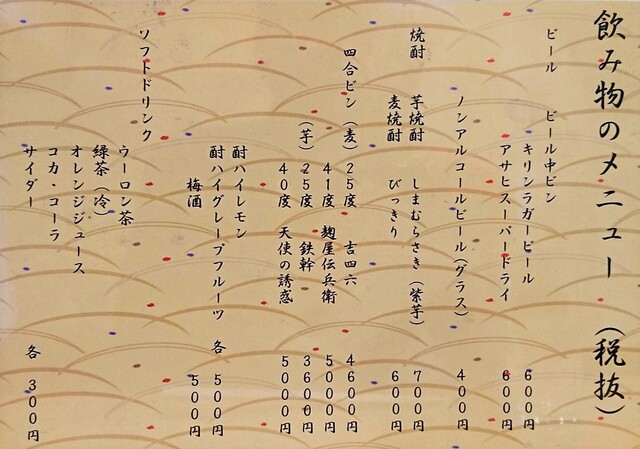 飲み物のメニュー（税抜）
ビール　ビール中ビン
キリンラガービール　600円
アサヒスーパードライ　600円
ノンアルコールビール（グラス）　400円
焼酎　芋焼酎　しまむらさき（紫芋）　700円
麦焼酎　びっきり　600円
四合ビン（麦）25度　吉四六　4600円
41度　麹屋伝兵衛　5000円
（芋）25度　鉄幹　3600円
40度　天使の誘惑　5000円
酎ハイレモン
酎ハイグレープフルーツ　各　500円
梅酒　500円
ソフトドリンク
ウーロン茶
緑茶（冷）
オレンジジュース
コカ・コーラ
サイダー　各　300円